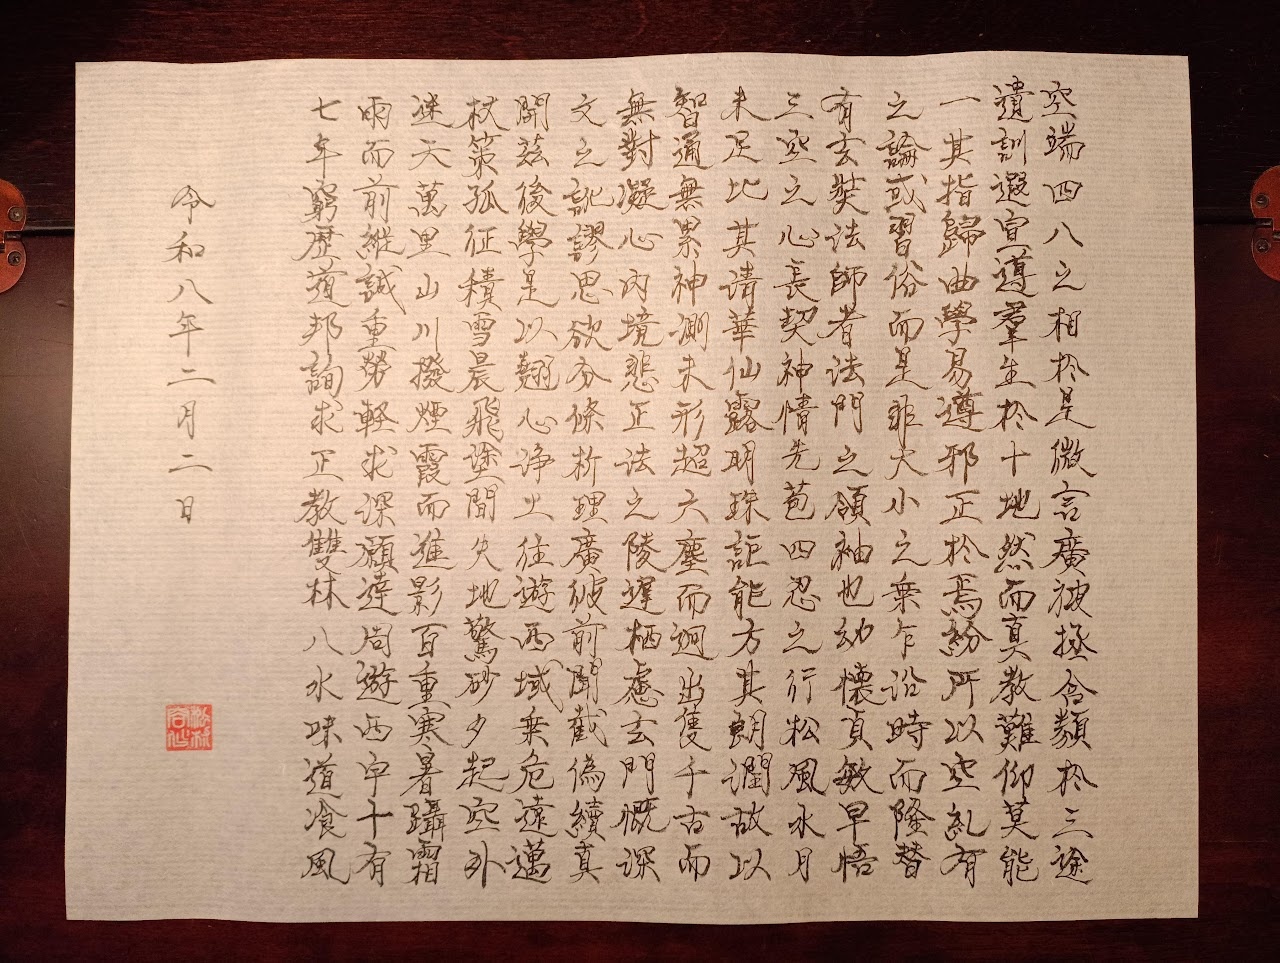 空端四八之相於是微言廣被拯含類於三途
遺訓遐宣遵羣生於十地然而真教難仰莫能
一其指歸曲學易遵邪正於焉紛所以空糺有
之論或習俗而是非大小之乗乍沿時而隆替
有玄奘法師者法門之領袖也幼懷貞敏早悟
三空之心長契神情先苞四忍之行松風水月
未足比其清華仙露明珠詎能方其朗潤故以
智通無累神測未形超六塵而迥出隻千古而
無對凝心内境悲正法之陵遲栖慮玄門慨深
文之訛謬思欲分條析理廣彼前聞截偽續真
開茲後學是以翹心浄土往遊西域乗危遠邁
杖策孤征積雪晨飛塗間失地驚砂夕起空外
迷天萬里山川撥煙霞而進影百重寒暑躡霜
雨而前蹤誠重勞軽求深願達周遊西宇十有
七年窮歴道邦詢求正教雙林八水味道飡風
令和八年二月二日